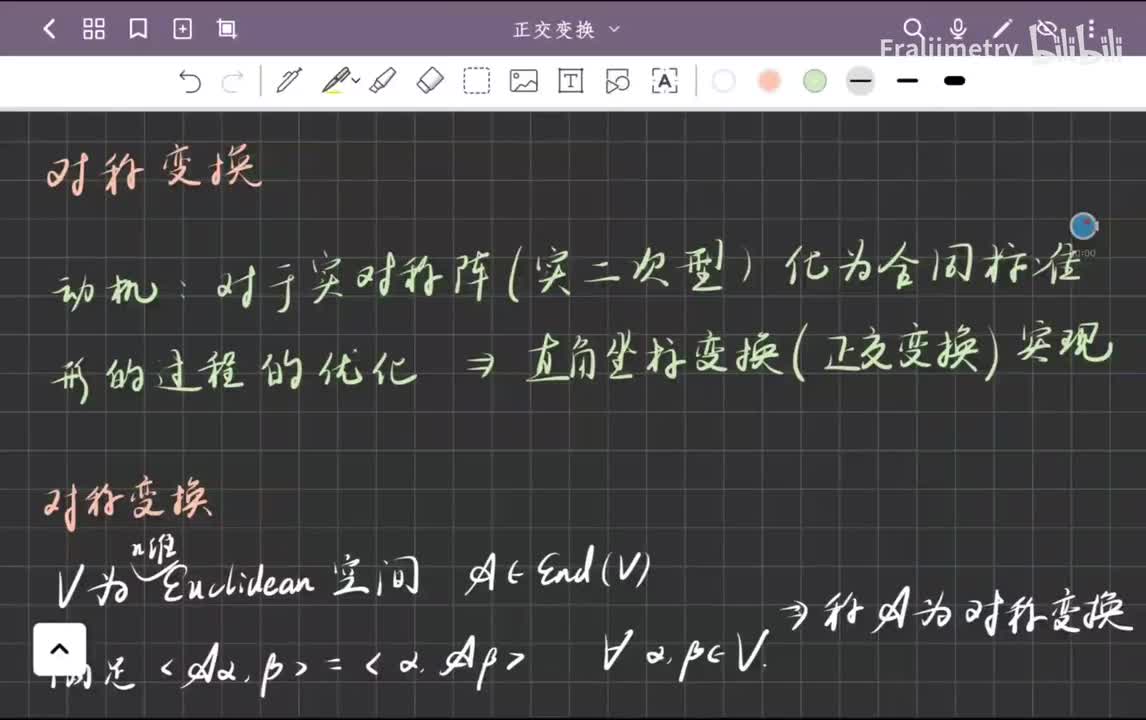 正交变换
Fraljimetry bilibili
对称变换
动机：对于实对称阵(实二次型)化为合同标准
形的过程的优化 ⇒ 直角坐标变换(正交变换)实现
对称变换
n维
V为Euclidean空间 𝒜∈End(V)
⇒称𝒜为对称变换
满足<𝒜α,β>=<α,𝒜β> ∀α,β∈V.